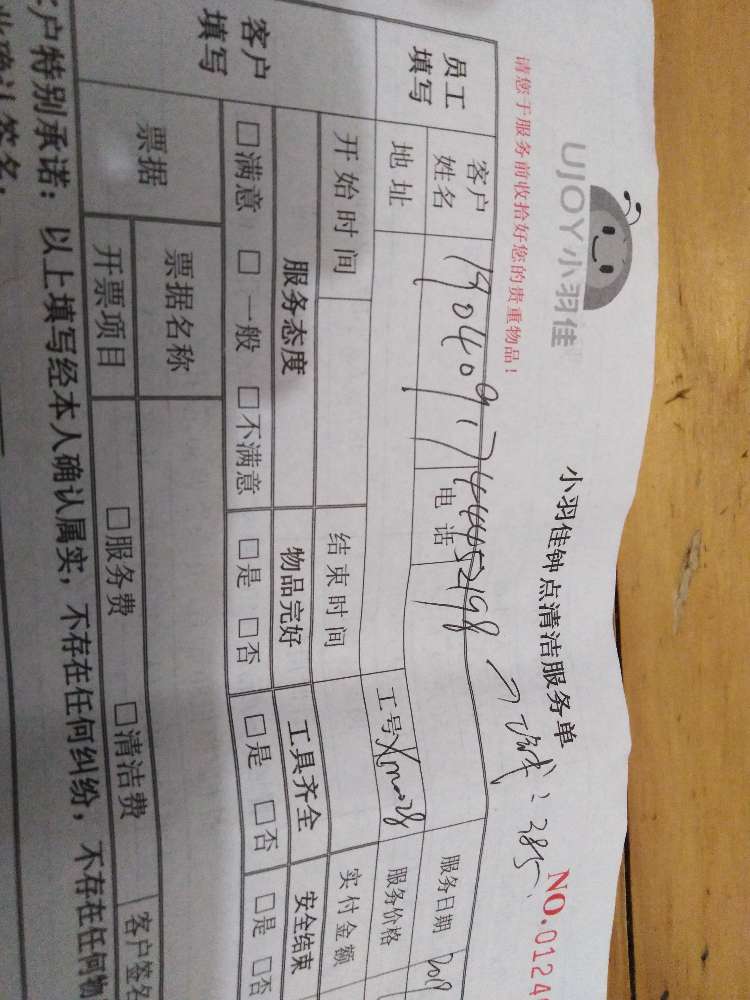 UJOY小羽佳
小羽佳钟点清洁服务单
NO.0124
请您于服务前收拾好您的贵重物品！
员工填写
客户姓名
190409174445298
电话
服务日期 2019
地址
工号
服务价格
客户填写
开始时间
结束时间
实付金额
服务态度
物品完好
工具齐全
安全结束
□满意 □一般 □不满意
□是 □否
□是 □否
□是 □否
票据
票据名称
开票项目
□服务费 □清洁费
客户签名
客户特别承诺：以上填写经本人确认属实，不存在任何纠纷，不存在任何物